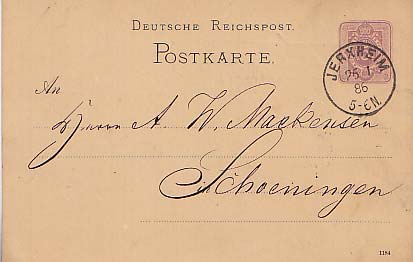 DEUTSCHE REICHSPOST.
POSTKARTE.
JERXHEIM
26 1
86
5-6N.
An
Herrn A. W. Mackensen
Schoeningen
1184